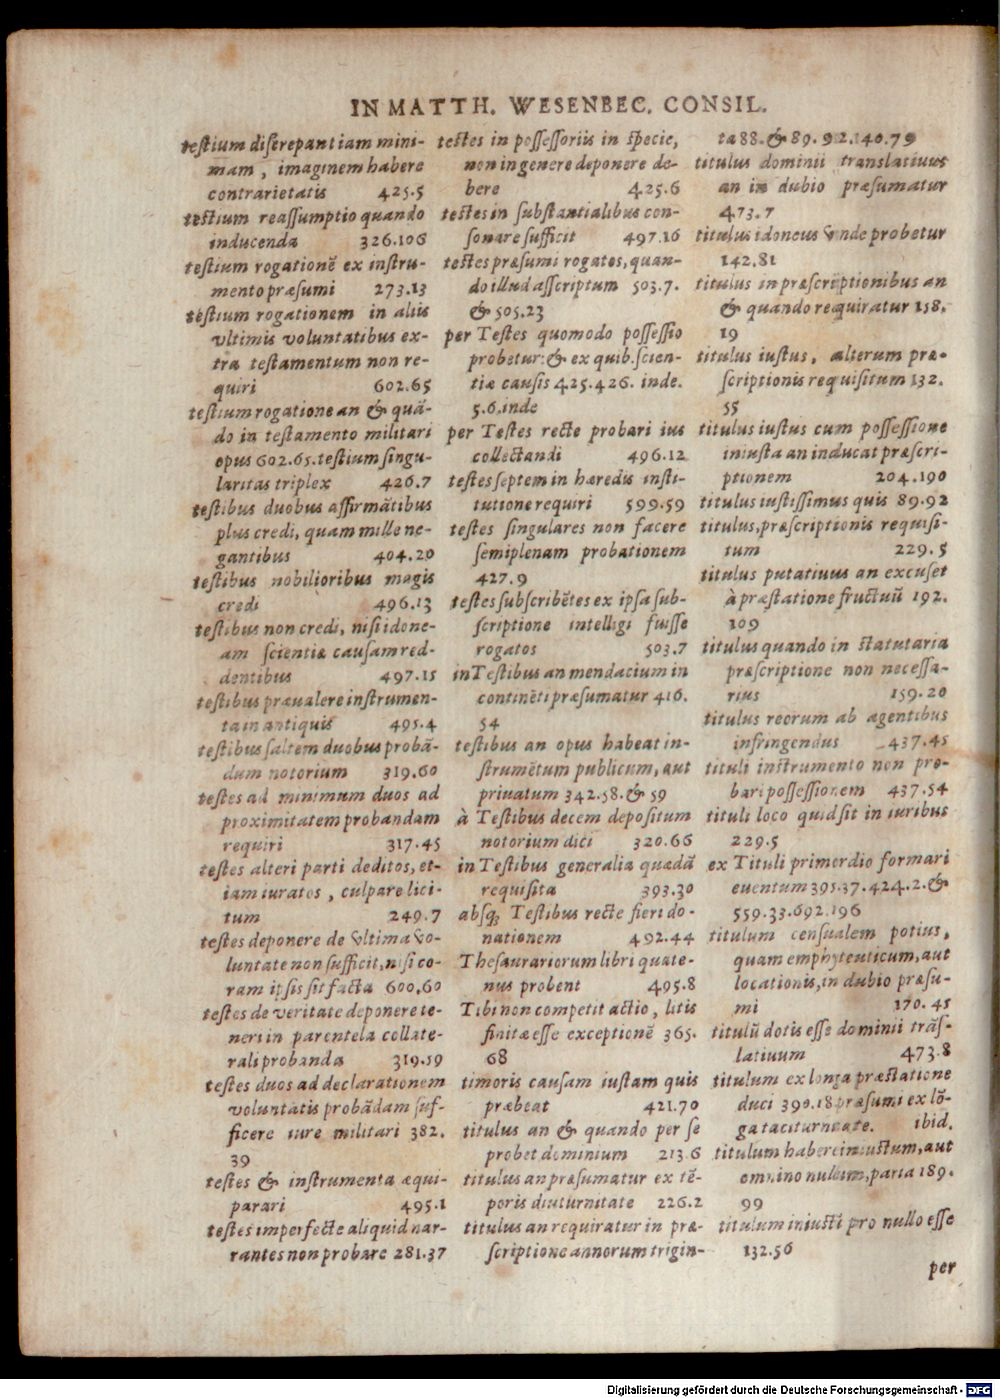 IN MATTH. WESENBEC. CONSIL.
testium discrepantiam mini-
mam, imaginem habere
contrarietatis 425.5
testium reassumptio quando
inducenda 326.106
testium rogationē ex instru-
mento præsumi 273.13
testium rogationem in aliis
vltimis voluntatibus ex-
tra testamentum non re-
quiri 602.65
testium rogatione an & quā-
do in testamento militari
opus 602.65. testium singu-
laritas triplex 426.7
testibus duobus affirmātibus
plus credi, quam mille ne-
gantibus 404.20
testibus nobilioribus magis
credi 496.13
testibus non credi, nisi idone-
am scientiæ causam red-
dentibus 497.15
testibus præualere instrumen-
ta in antiquis 495.4
testibus saltem duobus probā-
dum notorium 319.60
testes ad minimum duos ad
proximitatem probandam
requiri 317.45
testes alteri parti deditos, et-
iam iuratos, culpare lici-
tum 249.7
testes deponere de vltima vo-
luntate non sufficit, nisi co-
ram ipsis sit facta 600.60
testes de veritate deponere te-
neri in parentela collate-
rali probanda 319.59
testes duos ad declarationem
voluntatis probādam suf-
ficere iure militari 382.
39
testes & instrumenta æqui-
parari 495.1
testes imperfecte aliquid nar-
rantes non probare 281.37
testes in possessoriis in specie,
non in genere deponere de-
bere 425.6
testes in substantialibus con-
sonare sufficit 497.16
testes præsumi rogatos, quan-
do illud asscriptum 503.7.
& 505.23
per Testes quomodo possessio
probetur: & ex quib. scien-
tiæ causis 425.426. inde.
5.6. inde
per Testes recte probari ius
collectandi 496.12
testes septem in hæredis insti-
tutione requiri 599.59
testes singulares non facere
semiplenam probationem
427.9
testes subscribētes ex ipsa sub-
scriptione intelligi fuisse
rogatos 503.7
in Testibus an mendacium in
continēti præsumatur 416.
54
testibus an opus habeat in-
strumētum publicum, aut
priuatum 342.58. & 59
à Testibus decem depositum
notorium dici 320.66
in Testibus generalia quædā
requisita 393.30
absq; Testibus recte fieri do-
nationem 492.44
Thesaurariorum libri quate-
nus probent 495.8
Tibi non competit actio, litis
finitæ esse exceptionē 365.
68
timoris causam iustam quis
præbeat 421.70
titulus an & quando per se
probet dominium 213.6
titulus an præsumatur ex tē-
poris diuturnitate 226.2
titulus an requiratur in præ-
scriptione annorum trigin-
ta 88. & 89.92.140.79
titulus dominii translatiuus
an in dubio præsumatur
473.7
titulus idoneus vnde probetur
142.81
titulus in præscriptionibus an
& quando requiratur 158.
19
titulus iustus, alterum præ-
scriptionis requisitum 132.
55
titulus iustus cum possessione
iniusta an inducat præscri-
ptionem 204.190
titulus iustissimus quis 89.92
titulus, præscriptionis requisi-
tum 229.5
titulus putatiuus an excuset
à præstatione fructuū 192.
109
titulus quando in statutaria
præscriptione non necessa-
rius 159.20
titulus reorum ab agentibus
infringendus 437.45
tituli instrumento non pro-
bari possessionem 437.54
tituli loco quid sit in iuribus
229.5
ex Tituli primordio formari
euentum 395.37.424.2. &
559.33.692.196
titulum censualem potius,
quam emphyteuticum, aut
locationis, in dubio præsu-
mi 170.45
titulū dotis esse dominii trās-
latiuum 473.8
titulum ex longa præstatione
duci 390.18 præsumi ex lō-
ga taciturnitate. ibid.
titulum habere iniustum, aut
omnino nullum, paria 189.
99
titulum iniusti pro nullo esse
132.56
per
Digitalisierung gefördert durch die Deutsche Forschungsgemeinschaft - DFG